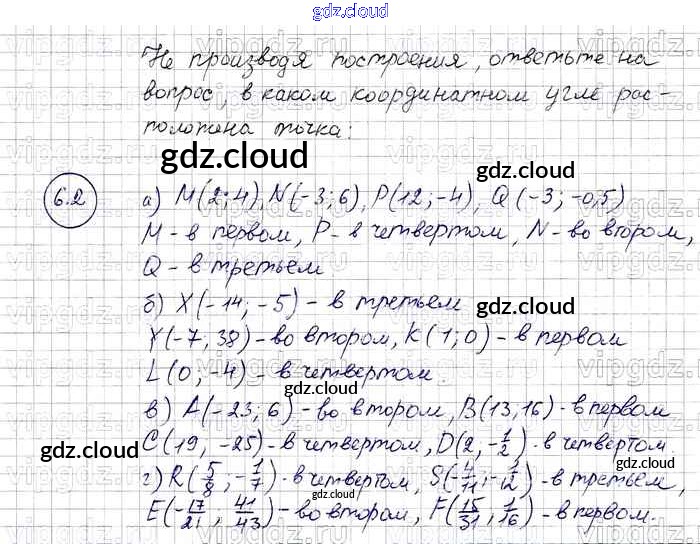 gdz.cloud
Не производя построения, ответьте на
вопрос, в каком координатном угле рас-
положена точка:
gdz.cloud
gdz.cloud
6.2
а) M(2; 4), N(-3; 6), P(12; -4), Q(-3; -0,5)
M - в первом, P - в четвертом, N - во втором,
Q - в третьем
б) X(-14; -5) - в третьем
gdz.cloud
Y(-7, 38) - во втором, K(1; 0) - в первом
L(0; -4) - в четвертом.
gdz.cloud
в) A(-23, 6) - во втором, B(13, 16) - в первом
gdz.cloud
C(19, -25) - в четвертом, D(2, -1/2) - в четвертом.
gdz.cloud
г) R(5/8; -1/7) - в четвертом, S(-4/11; -1/12) - в третьем,
gdz.cloud
gdz.cloud
E(-17/21; 41/43) - во втором, F(15/31; 1/16) - в первом.